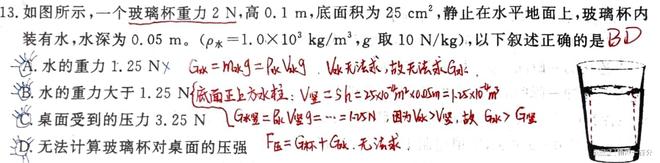 13.如图所示,一个玻璃杯重力 2 N,高 0.1 m,底面积为 25 cm²,静止在水平地面上,玻璃杯内
装有水,水深为 0.05 m。(ρ水=1.0×10³ kg/m³,g 取 10 N/kg),以下叙述正确的是 BD
A. 水的重力 1.25 N × G水=m水g=ρ水V水g. V水无法求,故无法求G水.
B. 水的重力大于 1.25 N {底面正上方水柱: V竖=Sh=25×10⁻⁴m²×0.05m=1.25×10⁻⁴m³
C. 桌面受到的压力 3.25 N G水竖=ρ水V竖g=…=1.25N 因为V水>V竖,故G水>G竖
D. 无法计算玻璃杯对桌面的压强 F压=G杯+G水.无法求.